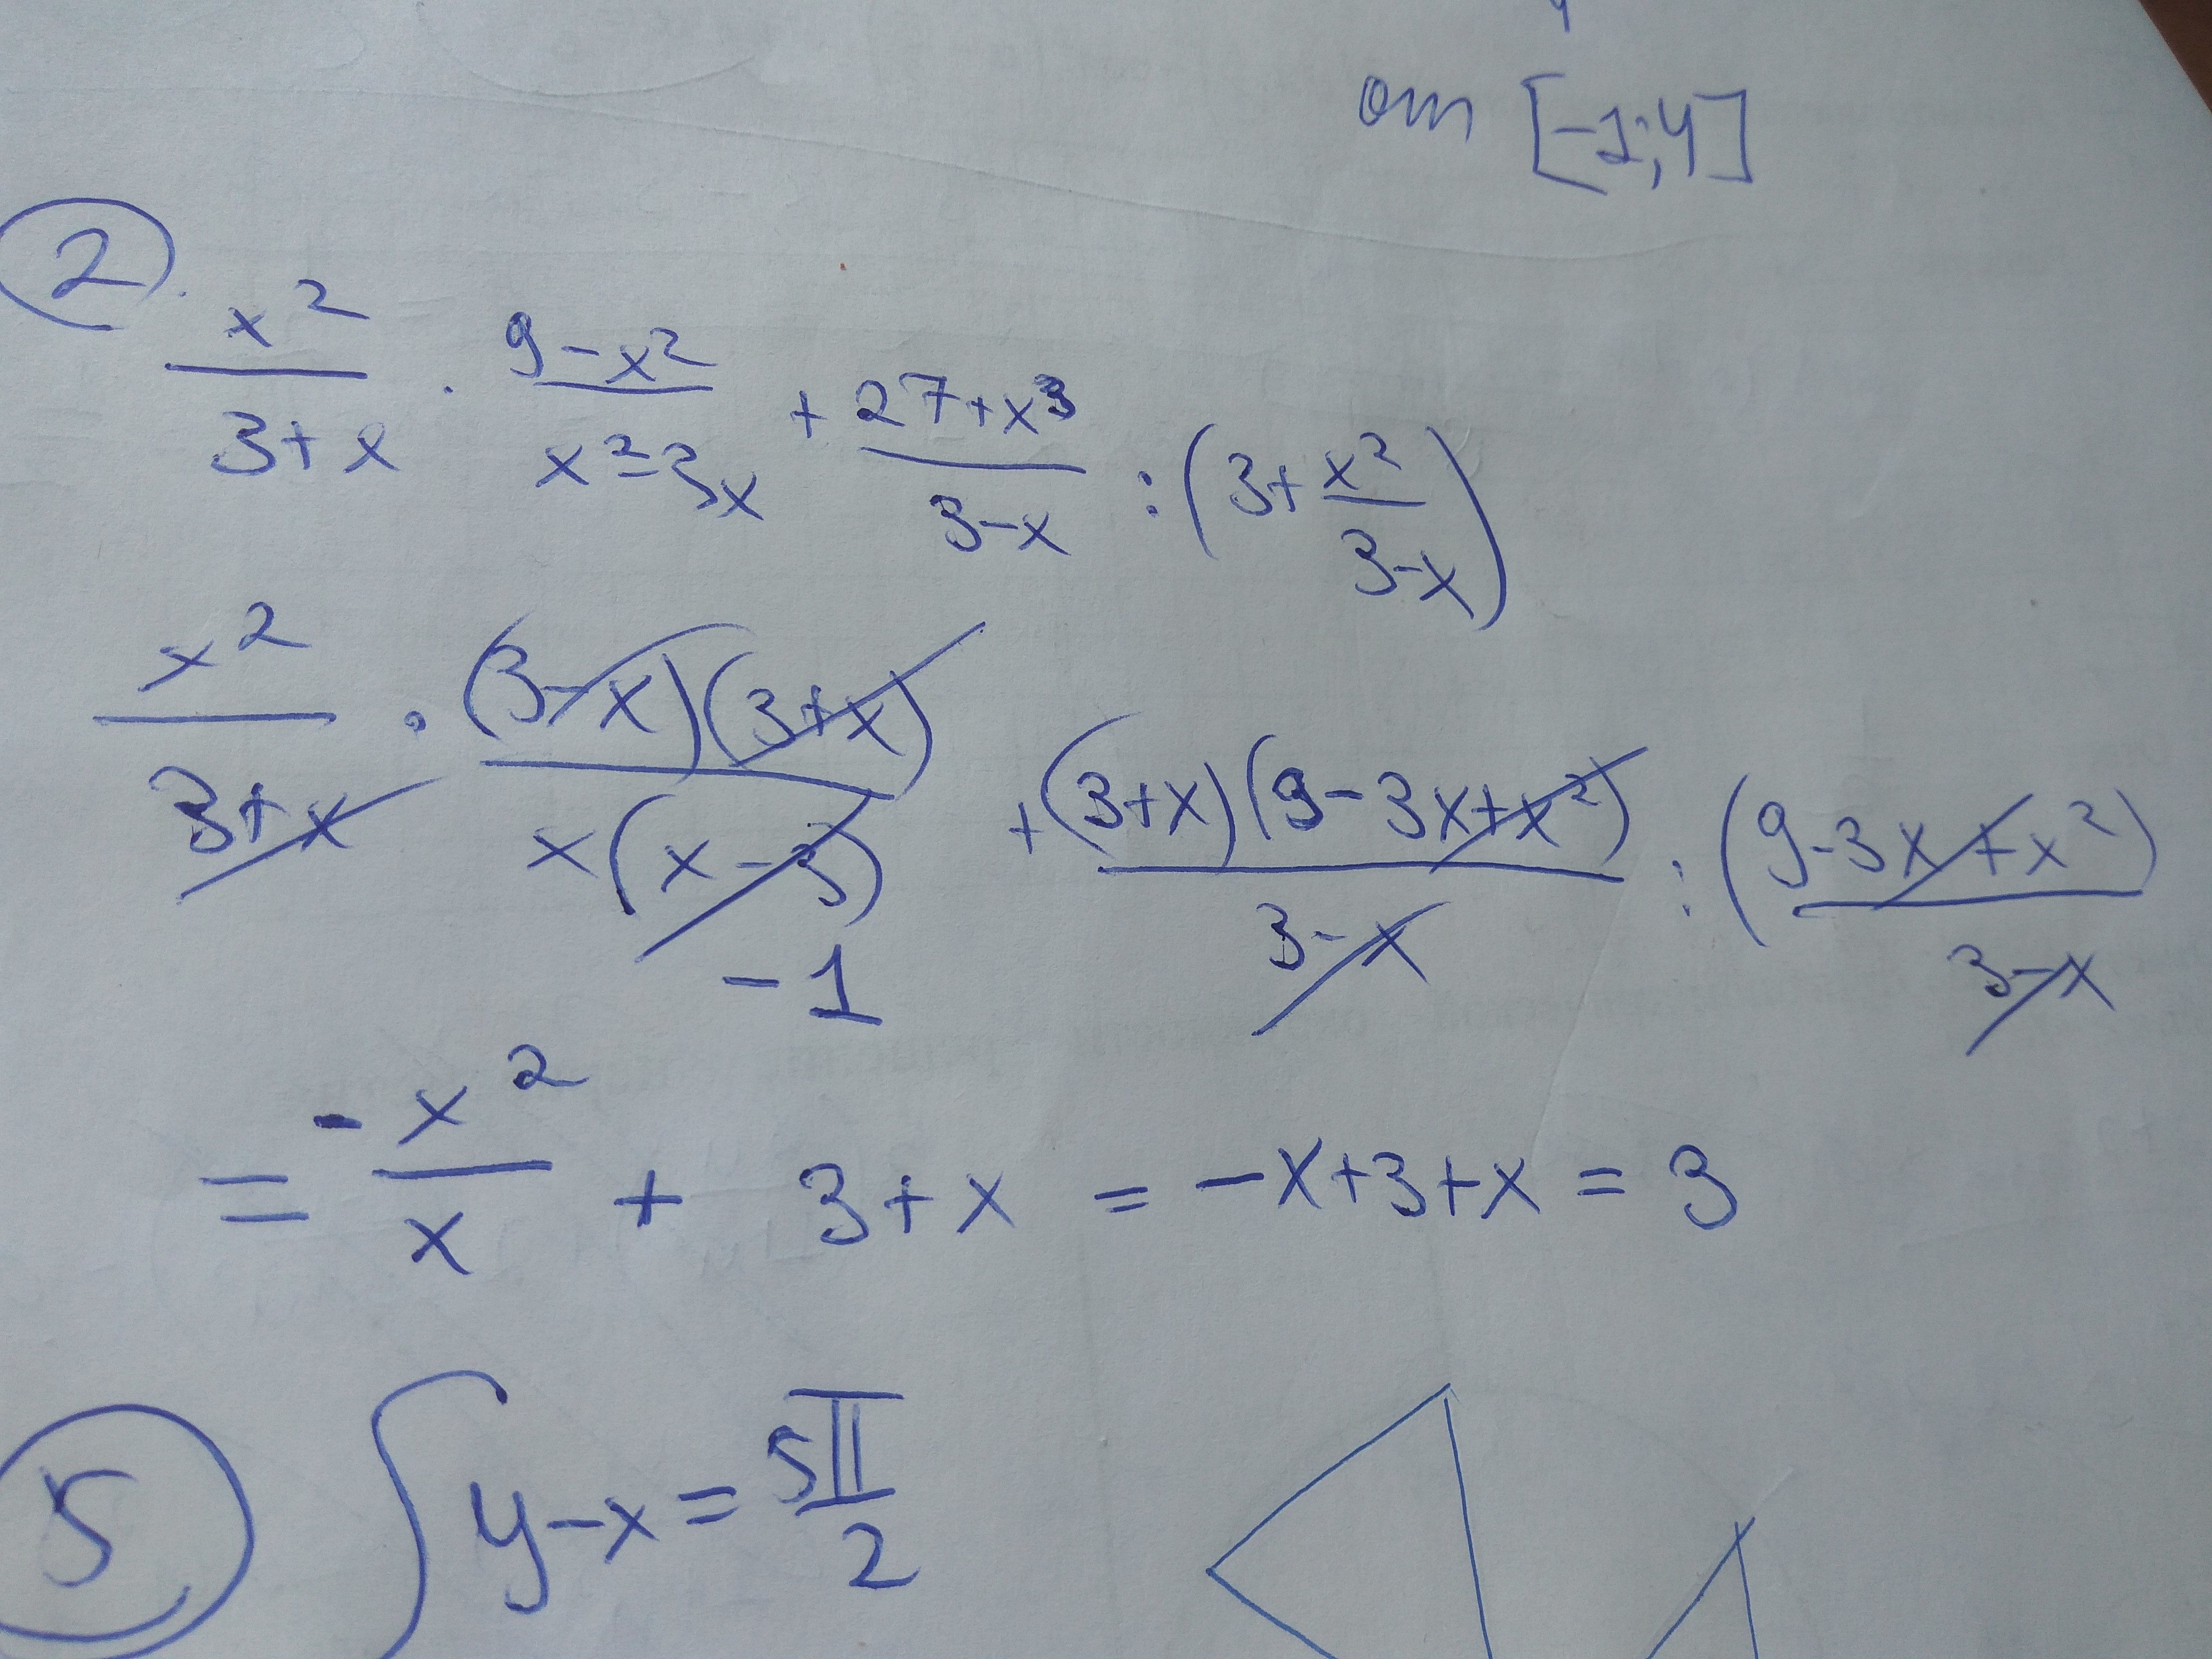 от [-1;4]
2. x²/(3+x) · (9-x²)/(x²-3x) + (27+x³)/(3-x) : (3+x²/(3-x))
x²/(3+x) · (3-x)(3+x)/(x(x-3)) + (3+x)(9-3x+x²)/(3-x) : (9-3x+x²)/(3-x)
-1
= -x²/x + 3+x = -x+3+x = 3
5 { y-x = 5π/2